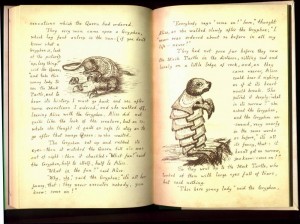 executions which the Queen had ordered.
They very soon came upon a Gryphon,
which lay fast asleep in the sun: (if you don't
know what a
Gryphon is, look
at the picture):
the
Queen, and take this
young lady to
see the Mock
Turtle, and to
hear its history. I must go back and see after
some executions I ordered," and she walked off,
leaving Alice with the Gryphon. Alice did not
quite like the look of the creature, but on the
whole she thought it quite as safe to stay as to
go after that savage Queen: so she waited.
The Gryphon sat up and rubbed its
eyes: then it watched the Queen till she was
out of sight: then it chuckled. "What fun!" said
the Gryphon, half to itself, half to Alice.
"What is the fun?" said Alice.
"Why, she," said the Gryphon; "it's all her
fancy, that: they never executes nobody, you
know: come on!"
"Everybody says 'come on!' here," thought
Alice, as she walked slowly after the Gryphon; "I
never was ordered about so before in all my
life — never!"
They had not gone far before they saw
the Mock Turtle in the distance, sitting sad and
lonely on a little ledge of rock, and, as they
came nearer, Alice
could hear it sighing
as if its heart
would break. She
pitied it deeply: "what
is its sorrow?" she
asked the Gryphon,
and the Gryphon
answered, very nearly
in the same words
as before, "it's all
its fancy, that: it
hasn't got no sorrow,
you know: come on!"
So they went up to the Mock Turtle, who
looked at them with large eyes full of tears,
but said nothing.
"This here young lady" said the Gryphon,